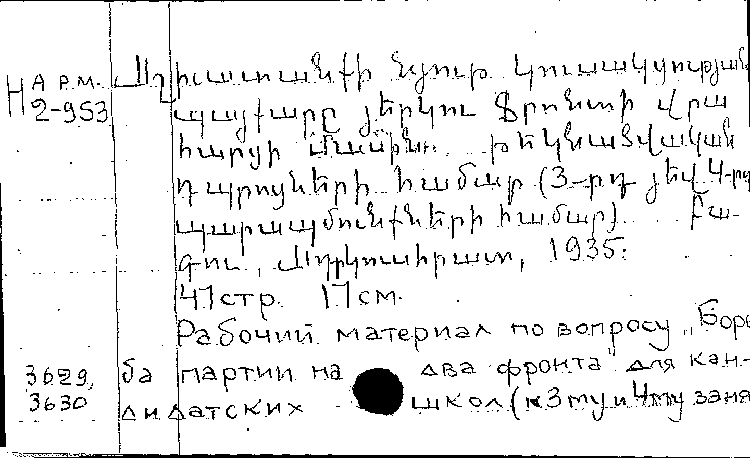 НА Р.М. Աշխատանքի նյութ կուսակցության
2-953 պայքարը յերկու ֆրոնտի վրա
հարցի մասին. թեկնածվական
դպրոցների համար (3-րդ յեվ 4-րդ
պարապմունքների համար). Բա-
գու, Ադրկուսհրատ, 1935:
47 стр. 17 см.
Рабочий материал по вопросу „Борь
3629, ба партии на два фронта" для кан-
3630 дидатских школ (к 3му и 4му заня